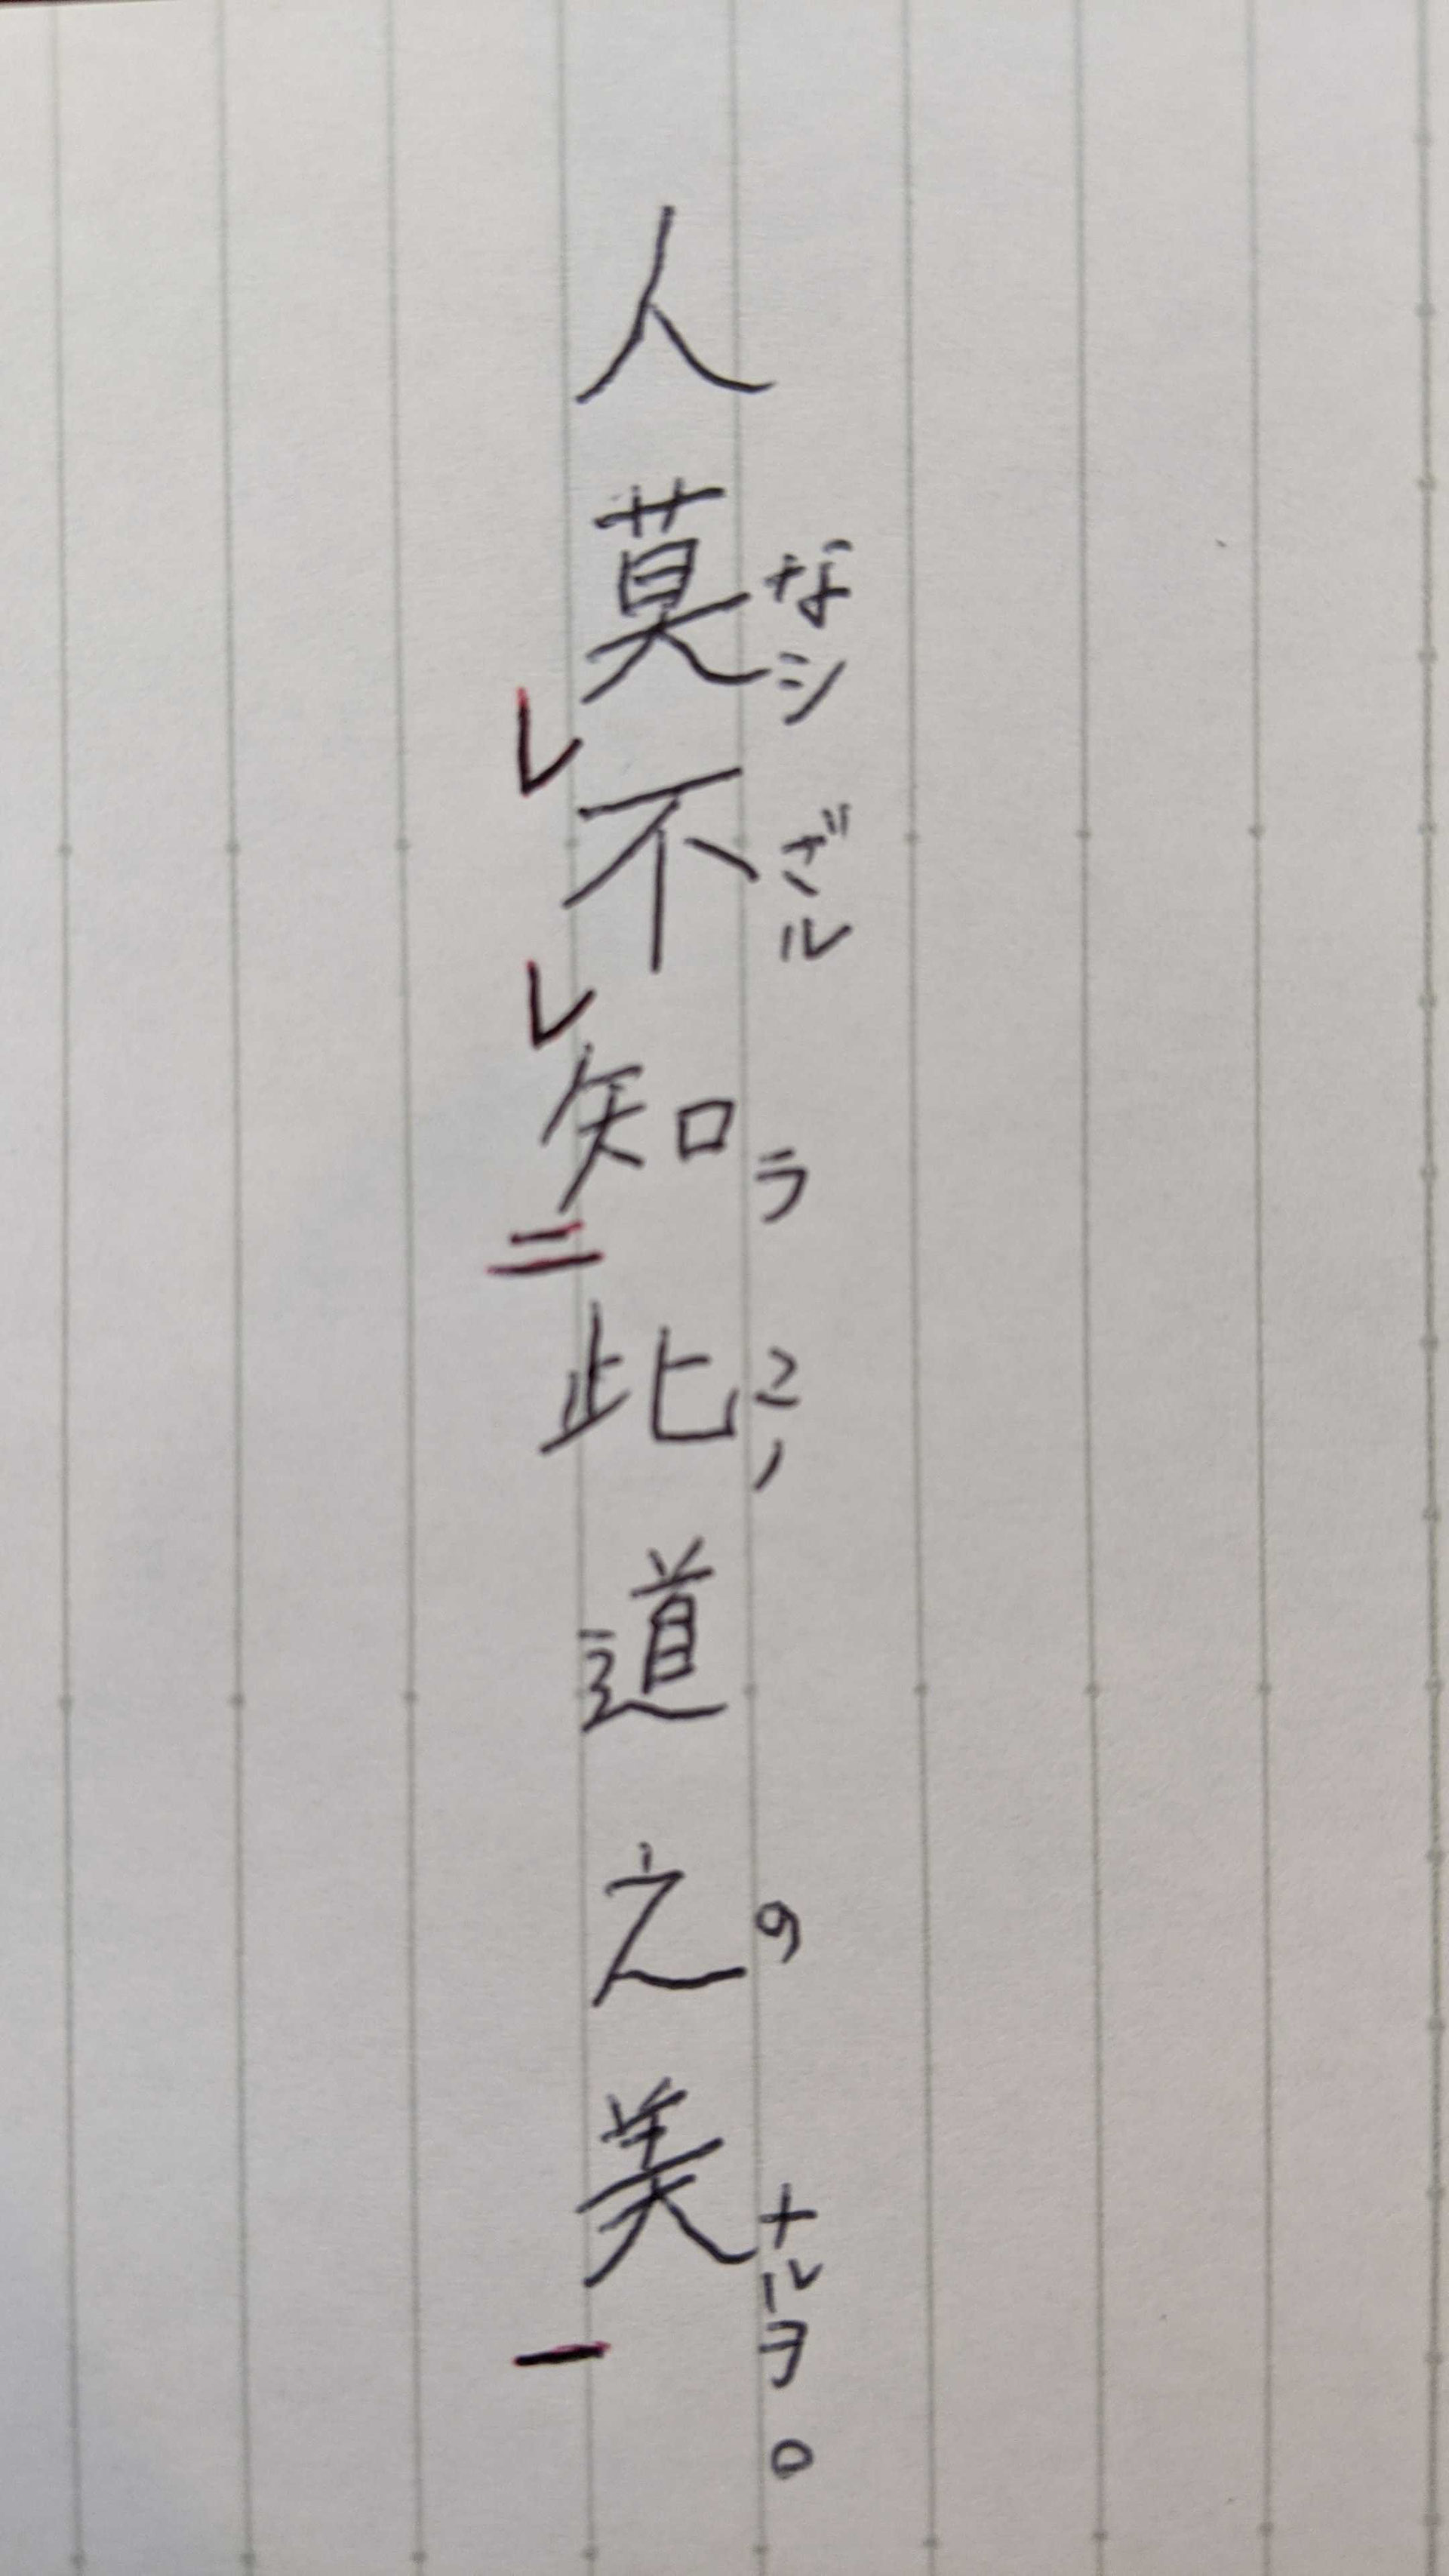 人莫なシレ不ざルレ知ラ二此こノ道之の美ナルヲ一。